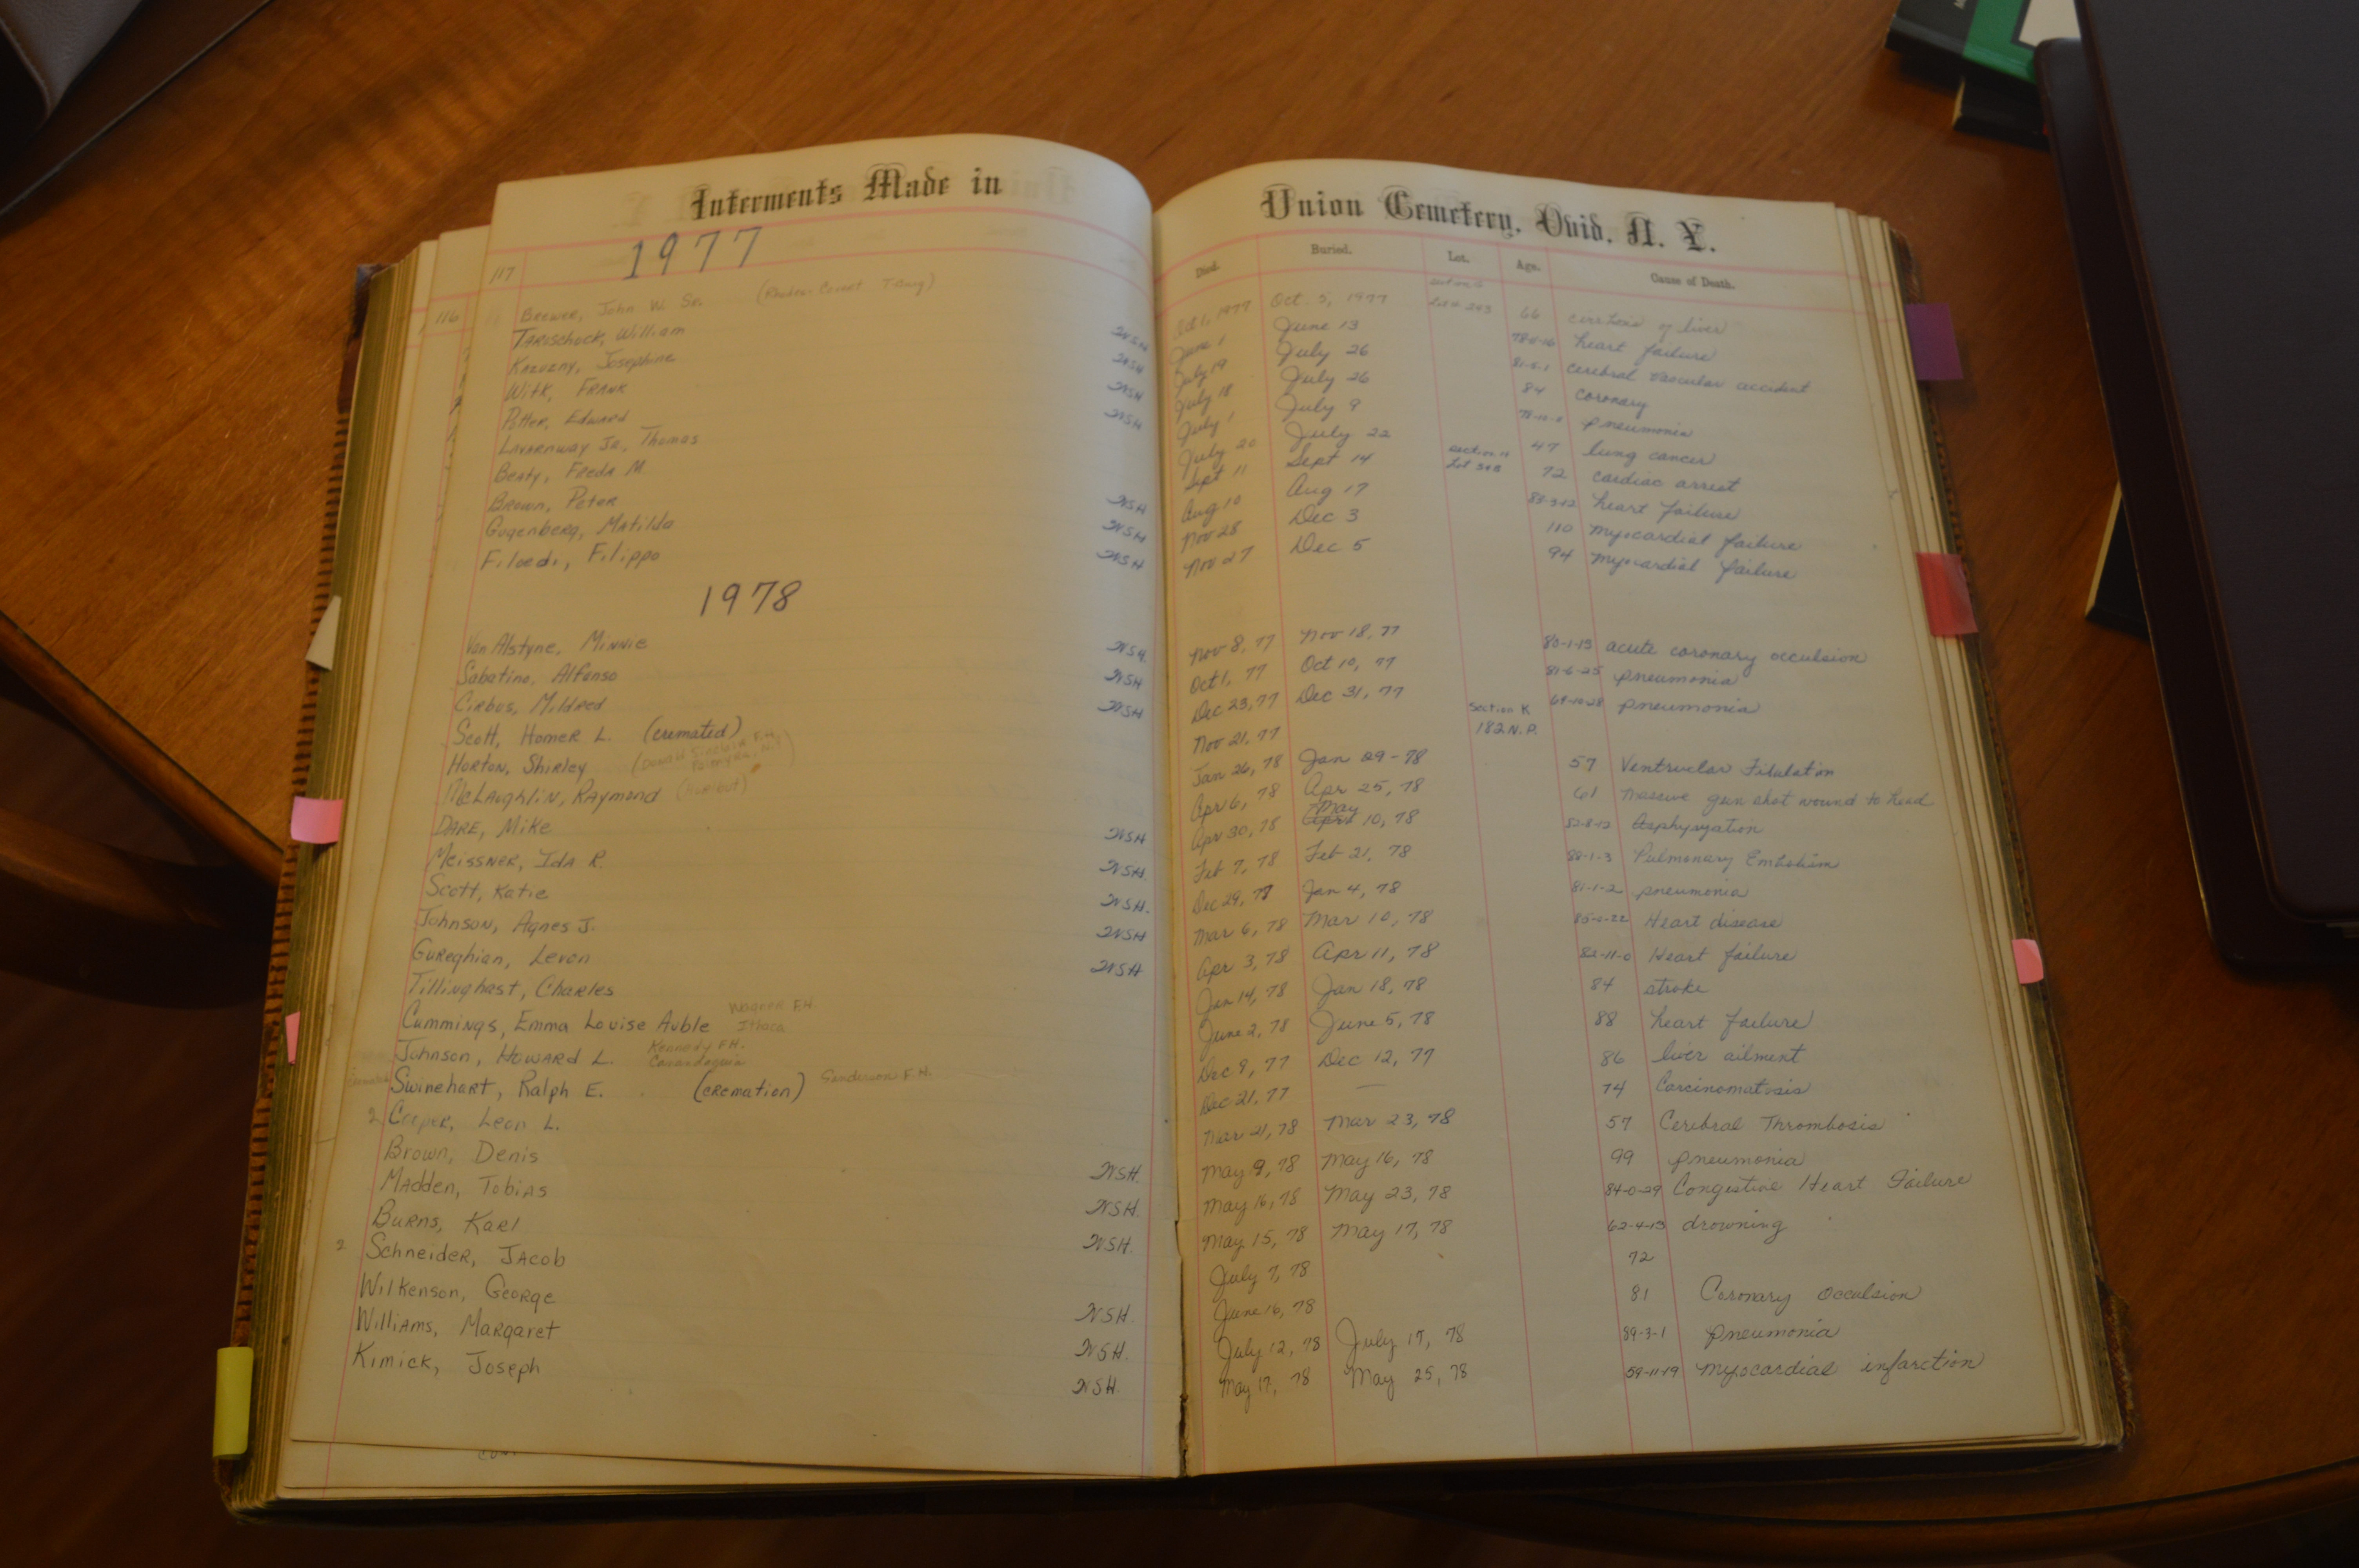 Interments Made in Union Cemetery, Ovid, N. Y.
117 1977
116
Died. Buried. Lot. Age. Cause of Death.
Brewer, John W. Sr. 1, 1977 Oct. 5, 1977 Lot # 243 66 of liver
Tarischuck, William NSH June 1 June 13 heart failure
Kazuzny, Josephine NSH July 19 July 26 cerebral vascular accident
Witk, Frank NSH July 18 July 26 84 coronary
Potter, Edward NSH July 1 July 9 pneumonia
Lavarnway Jr., Thomas July 20 July 22 47 lung cancer
Beaty, Freda M Sept 11 Sept 14 section Lot 72 cardiac arrest
Brown, Peter NSH Aug 10 Aug 17 83-3-12 heart failure
Gugenberg, Matilda NSH Nov 28 Dec 3 110 myocardial failure
Filoedi, Filippo NSH Nov 27 Dec 5 94 myocardial failure
1978
Van Alstyne, Minnie NSH Nov 8, 77 Nov 18, 77 80-1-15 acute coronary occulsion
Sabatino, Alfonso NSH Oct 1, 77 Oct 10, 77 81-6-25 pneumonia
Cirbus, Mildred NSH Dec 23, 77 Dec 31, 77 69-10-28 pneumonia
Scott, Homer L. (cremated) Nov 21, 77 Section K 182 N.P.
Horton, Shirley (Donald Sinclair F.H. Palmyra, N.Y.) Jan 26, 78 Jan 29-78 57 Ventricular Fibulation
McLaughlin, Raymond (Hurlbut) Apr 6, 78 Apr 25, 78 61 Massive gun shot wound to head
Dare, Mike NSH Apr 30, 78 May 10, 78 82-8-12 Asphyxyation
Meissner, Ida R. NSH Feb 7, 78 Feb 21, 78 88-1-3 Pulmonary Embolism
Scott, Katie NSH. Dec 29, 77 Jan 4, 78 81-1-2 pneumonia
Johnson, Agnes J. NSH Mar 6, 78 Mar 10, 78 Heart disease
Gureghian, Levon NSH Apr 3, 78 Apr 11, 78 82-11-0 Heart failure
Tillinghast, Charles Jan 14, 78 Jan 18, 78 84 stroke
Cummings, Emma Louise Auble Wagner F.H. Ithaca June 2, 78 June 5, 78 88 heart failure
Johnson, Howard L. Kennedy F.H. Canandaguia Dec 9, 77 Dec 12, 77 86 liver ailment
Swinehart, Ralph E. (cremation) Sanderson F.H. Dec 21, 77 — 74 Carcinomatosis
2 Cooper, Leon L. Mar 21, 78 Mar 23, 78 57 Cerebral Thrombosis
Brown, Denis NSH. May 9, 78 May 16, 78 99 pneumonia
Madden, Tobias NSH. May 16, 78 May 23, 78 84-0-29 Congestive Heart Failure
Burns, Karl NSH. May 15, 78 May 17, 78 62-4-13 drowning
2 Schneider, Jacob July 7, 78 72
Wilkenson, George NSH. June 16, 78 81 Coronary occulsion
Williams, Margaret NSH. July 12, 78 July 17, 78 89-3-1 pneumonia
Kimick, Joseph NSH. May 17, 78 May 25, 78 59-11-19 myocardial infarction